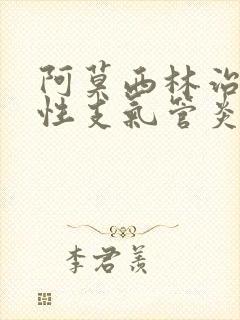 阿莫西林治
性支氣管炎
李君羡